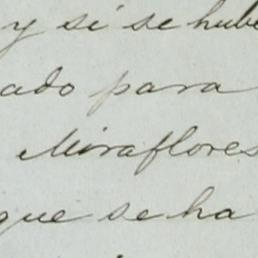 y si se hube
ado para
Miraflores
que se ha